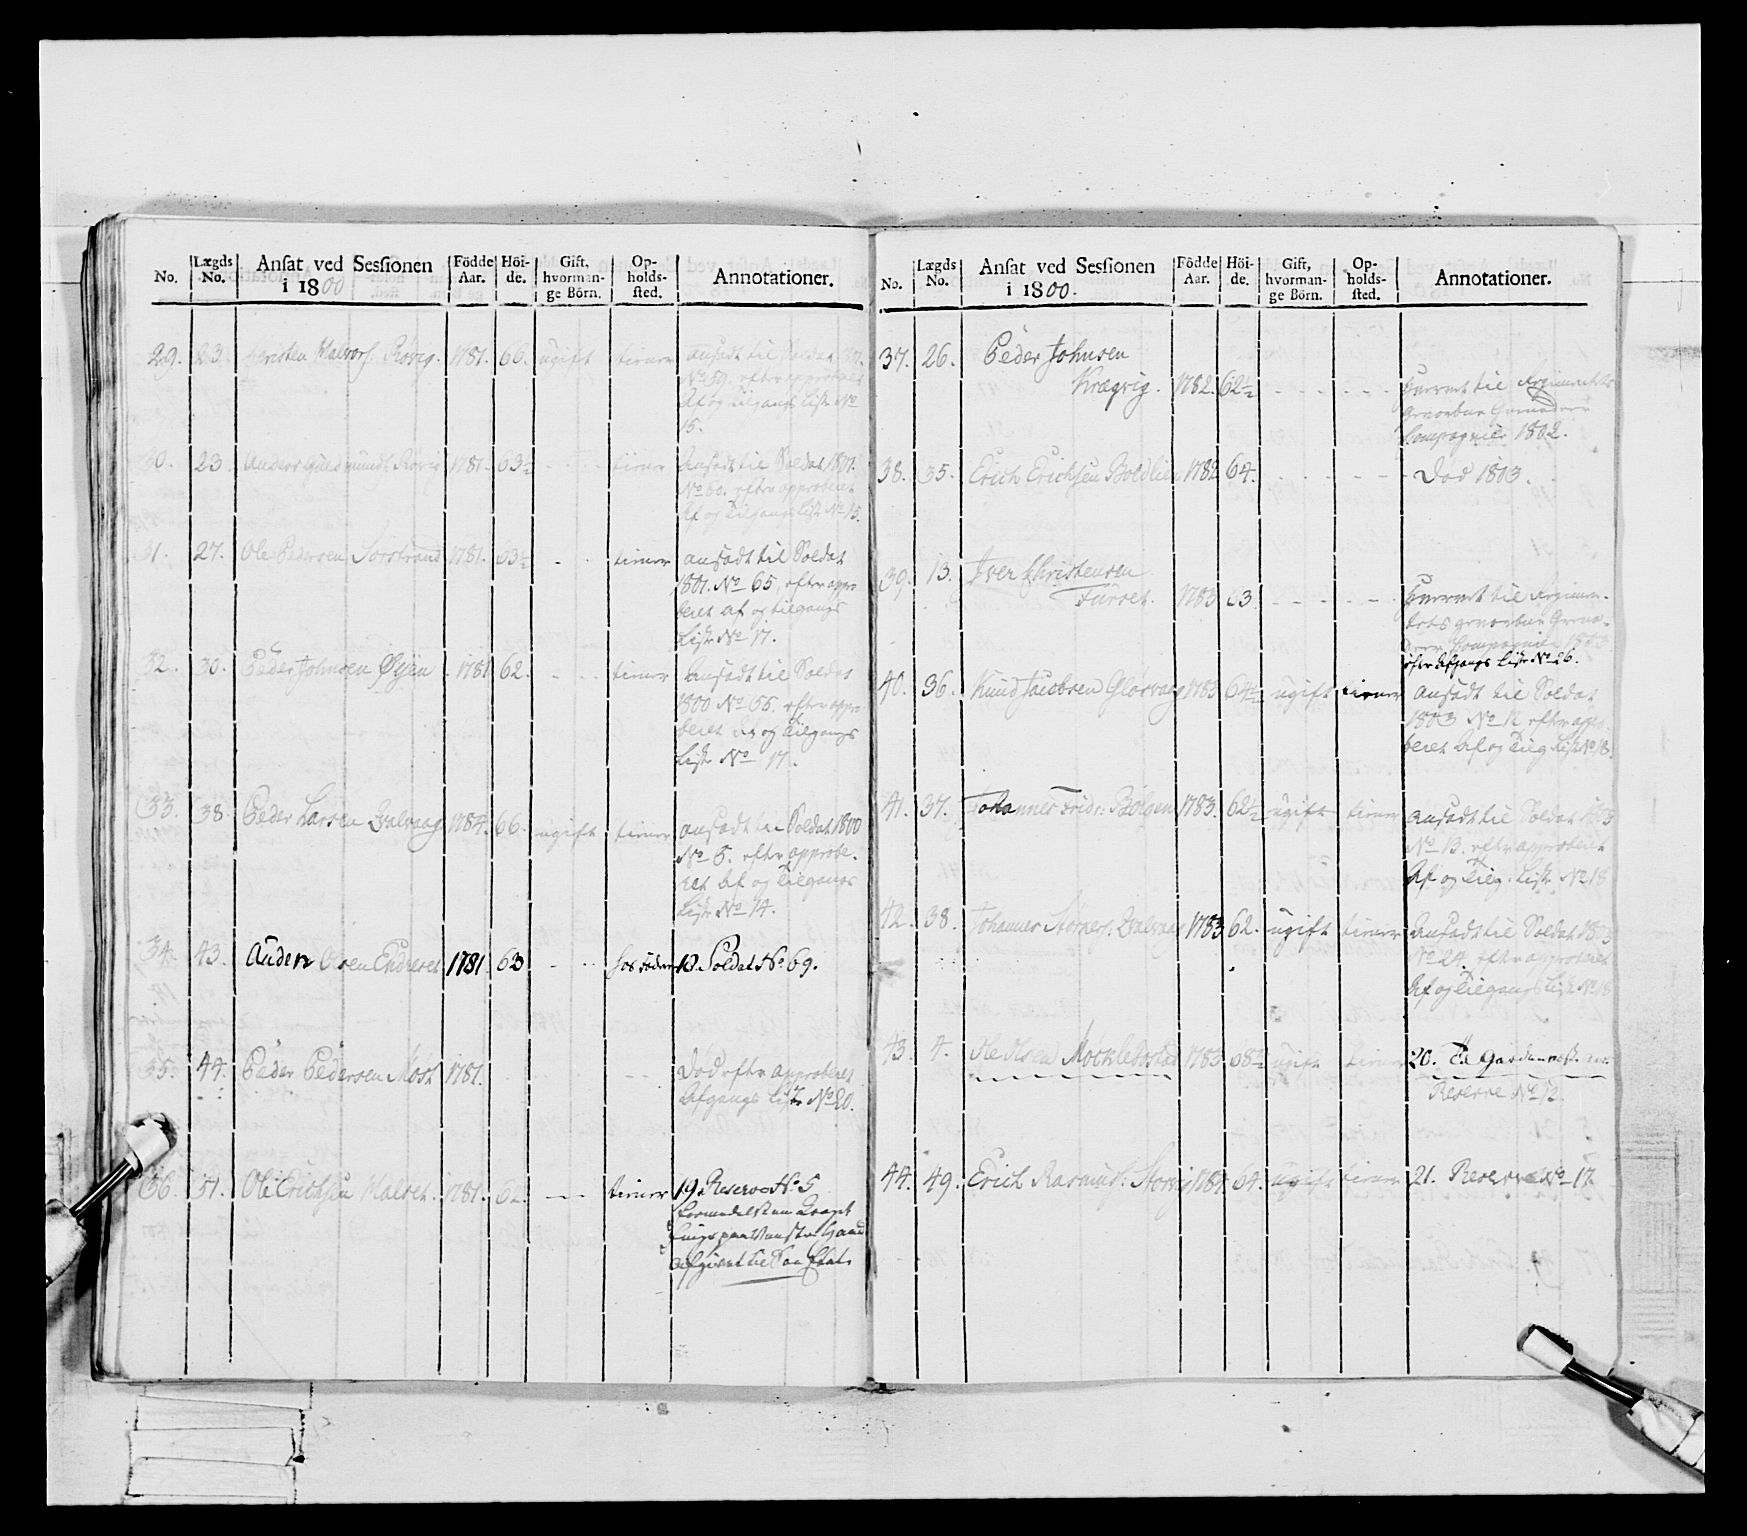 No. Lægds No. Ansat ved Sessionen i 1800 Födde Aar. Höi-de. Gift, hvorman-ge Börn. Op-holds-sted. Annotationer.
29. 23. Christen Halvors. Røvig. 1781. 66. ugift tiener ansadt til Soldat
No 59. efter approberet
Af og Tilgangs Liste No
15.
30. 23 Anders Guldmundt. Røvig 1781. 63½ - - tiener Ansadt til Soldat 1801.
No 60. efter approberet
Af og Tilgangs Liste No 15.
31. 27. Ole Pedersen Sorstrand 1781. 63½ - - tiener ansadt til Soldat
1801. No 65, efter appro
beret af og tilgangs
Liste No 17.
32. 30. Peder Johnsen Øyen 1781 62. - - tiener Ansadt til Soldat
1800 No 66. efter appro
beret Af og Tilgangs
Liste No 17.
33. 38. Peder Larsen 1784. 66. ugift tiener ansadt til Soldat 1800
No 6. efter approbe-
ret Af og Tilgangs
Liste No 14.
34. 43. Anders Olsen Endreset 1781 63 - - hos 18. Soldat No. 69.
35. 44. Peder Pedersen Møst 1781. - - Død efter approberet
Afgangs Liste No 20.
36. 51. Ole Erichsen Malset. 1781. 62. - - tiener 19. Reserve No. 5
formedelst en
paa Venstre Haand
afgivet til
No. Lægds No. Ansat ved Sessionen i 1800. Födde Aar. Höi-de. Gift, hvorman-ge Börn. Op-holds-sted. Annotationer.
37. 26. Peder Johnsen
Krægvig. 1782. 62½ - - - - - til Regimentets
Grenadeer
Compagnie 1802.
38. 35. Erich Erichsen Boldlien 1782 64. - - - - - Død 1803.
39. 13. Iver Christensen
Furset. 1783 63 - - - - - til Regimen-
tets Grena-
deer Compagnie 1803
efter Afgangs Liste No 26.
40. 36. Knud Jacobsen Glørvaag 1783 64½ ugift tiener Ansadt til Soldat
1803 No 12 efter appro
beret Af og Tilg. Liste No 18.
41. 37. Johannes Fridr: Bølgen 1783. 62½ ugift tiener ansadt til Soldat 1803
No 13. efter approberet
Af og Tilg. Liste No 18
42. 38. Johannes 1783 62. ugift tiener Ansadt til Soldat 1803
No 24. efter approberet
Af og Tilgangs Liste No 18
43. 4. Ole Olsen Mocklebostad 1783 68½ ugift tiener 20.
Reserve No 12.
44. 49. Erich Rasmus: Storvig 1784. 64. ugift tiener 21. Reserve No 17.